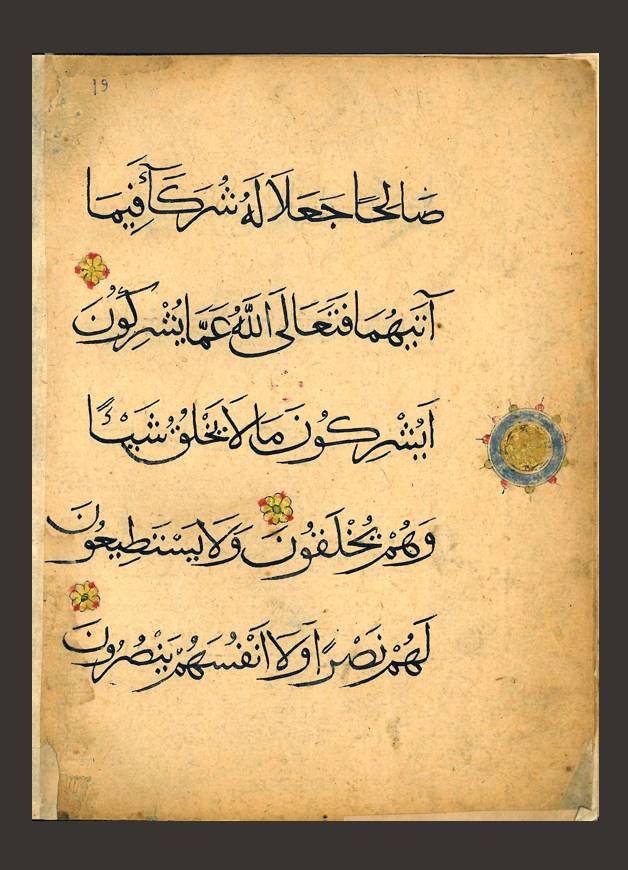 19
صَالِحًا جَعَلَا لَهُ شُرَكَآءَ فِيمَا
آتَيهُمَا فَتَعَالَى اللَّهُ عَمَّا يُشْرِكُونَ
اَيُشْرِكُونَ مَا لَا يَخْلُقُ شَيْئًا
وَهُمْ يُخْلَقُونَ وَلَا يَسْتَطِيعُونَ
لَهُمْ نَصْرًا وَلَا اَنْفُسَهُمْ يَنْصُرُونَ